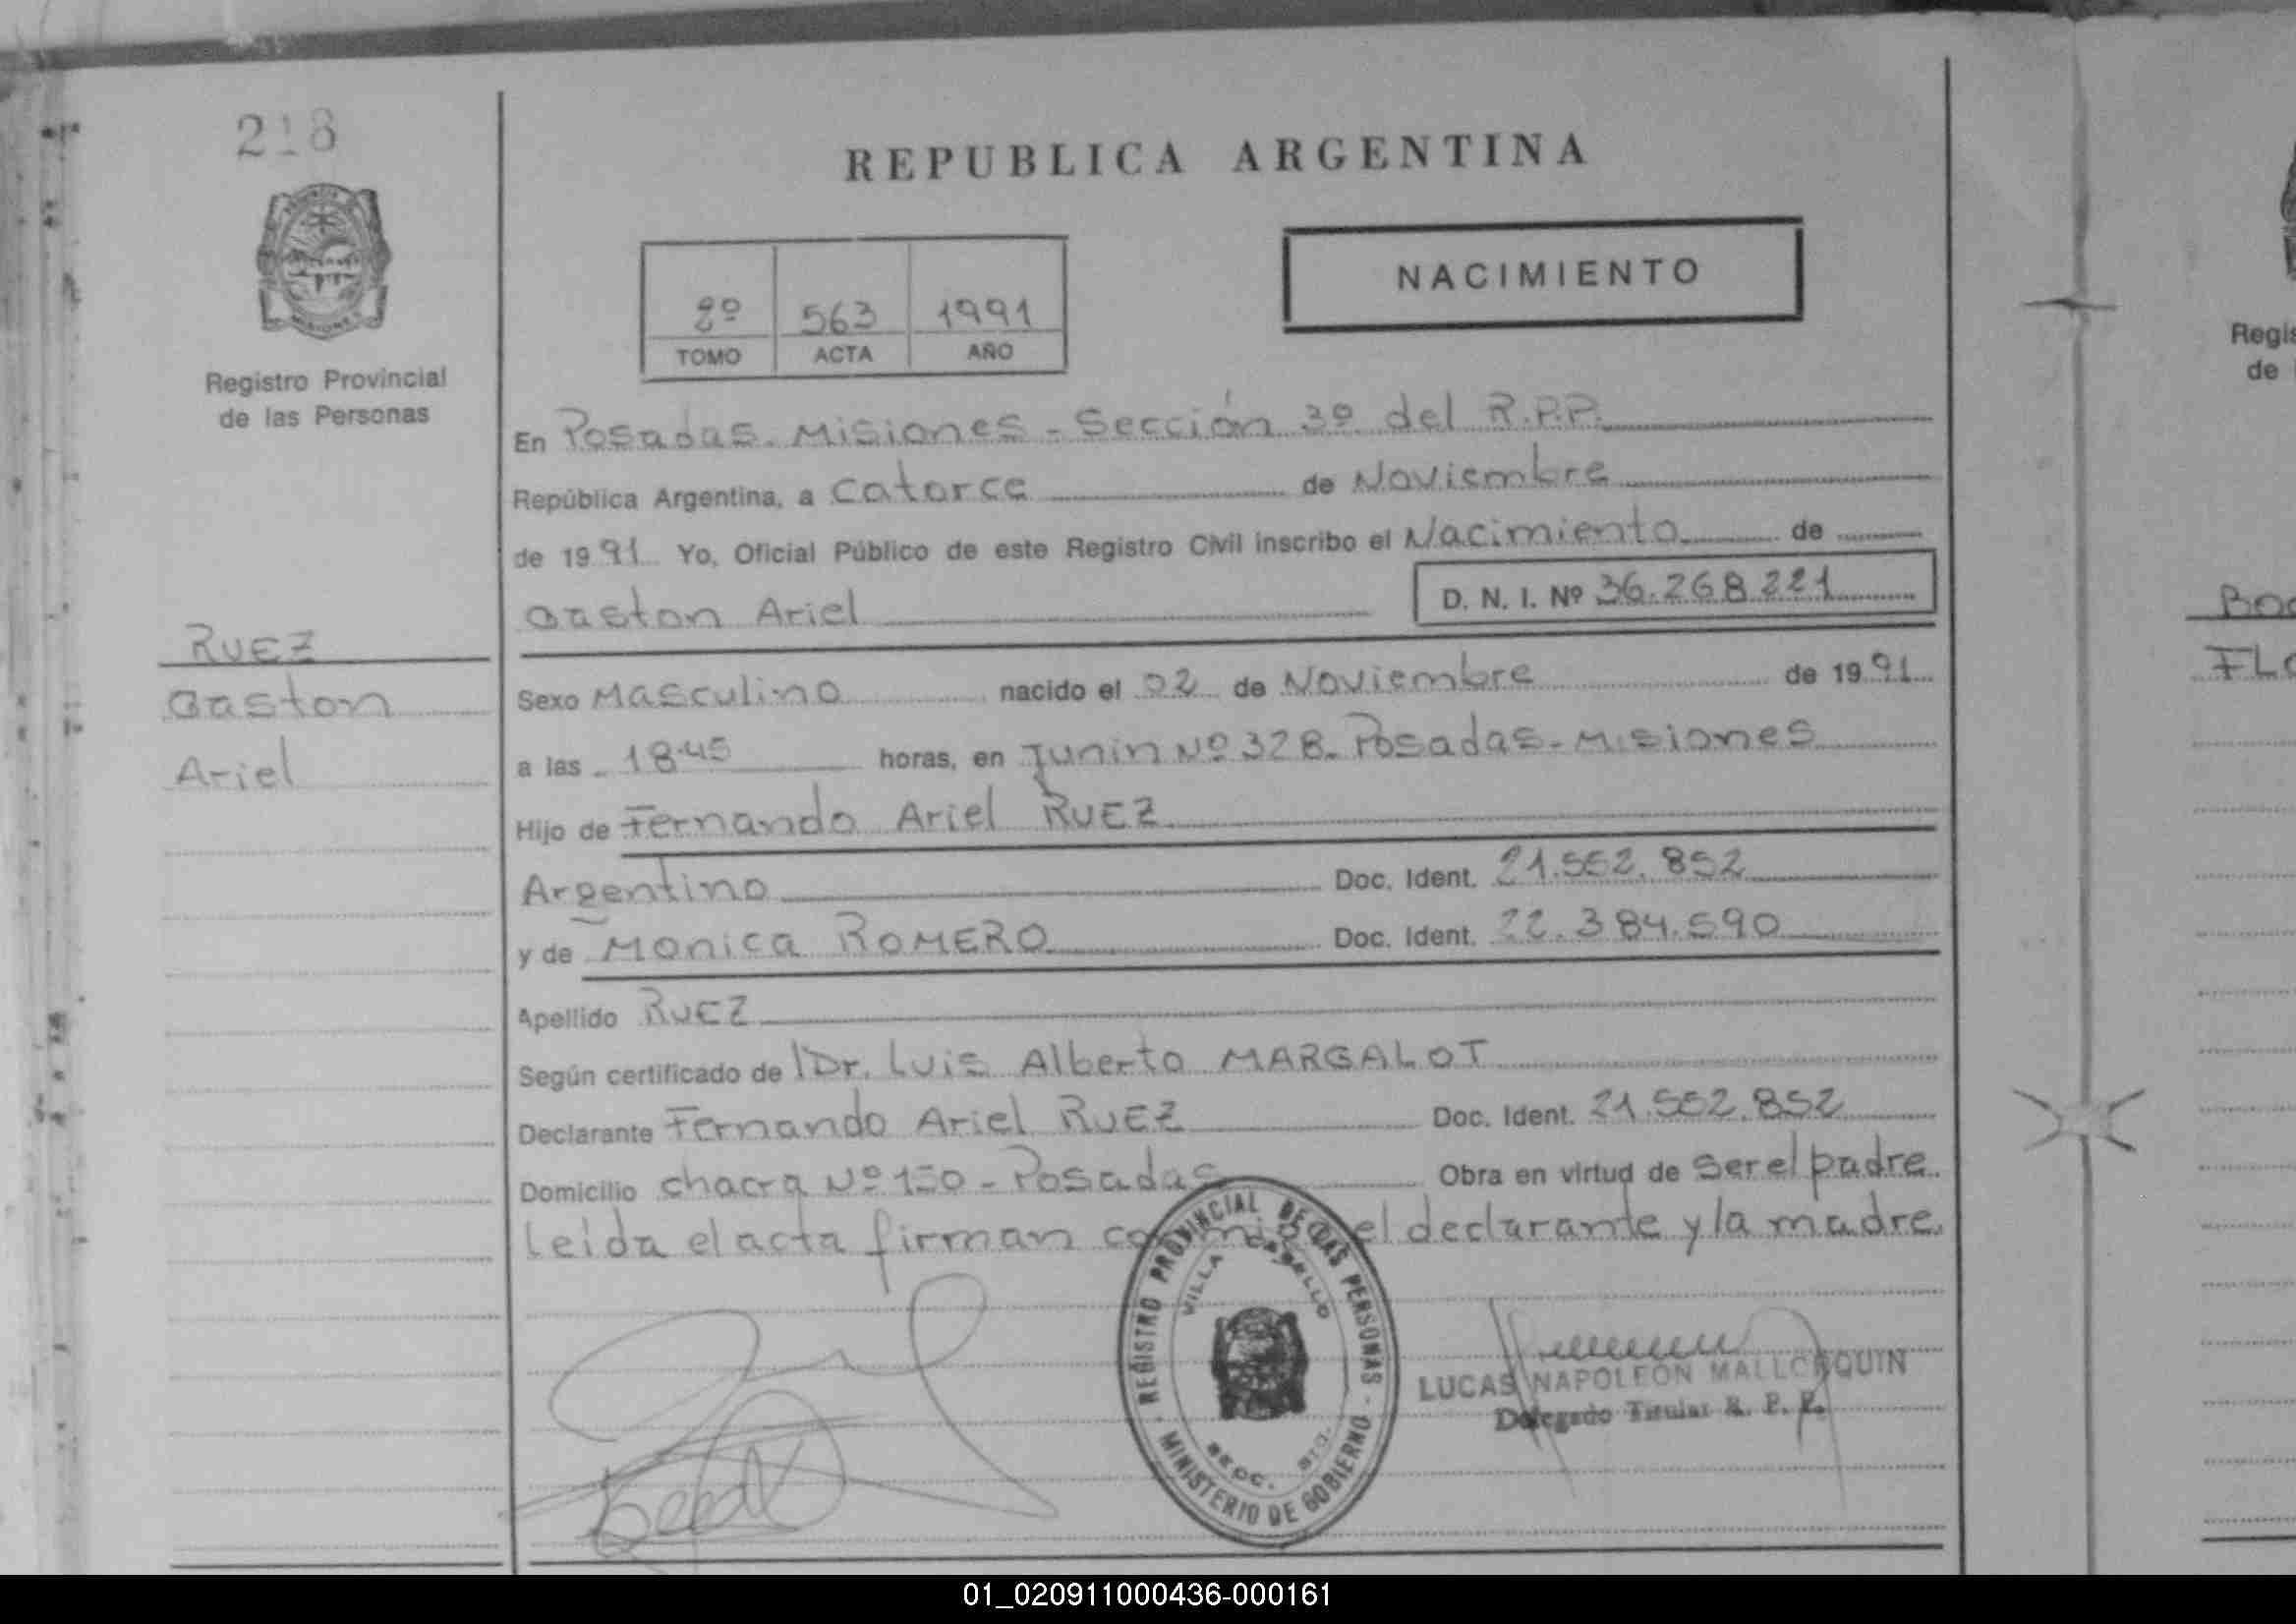 218
REPUBLICA ARGENTINA
NACIMIENTO
2º 563 1991
TOMO ACTA AÑO
Registro Provincial
de las Personas
En Posadas. Misiones - Sección 3º del R.P.P.
República Argentina, a Catorce de Noviembre
de 1991 Yo, Oficial Público de este Registro Civil inscribo el Nacimiento de
Gaston Ariel D. N. I. Nº 36.268.221
RUEZ
Gaston
Ariel
Sexo Masculino nacido el 02 de Noviembre de 1991
a las 18:45 horas, en Junin Nº 328. Posadas-Misiones
Hijo de Fernando Ariel RUEZ
Argentino Doc. Ident. 21.552.852
y de Monica ROMERO Doc. Ident. 22.384.590
Apellido RUEZ
Según certificado de Dr. Luis Alberto MARGALOT
Declarante Fernando Ariel RUEZ Doc. Ident. 21.552.852
Domicilio chacra Nº 150 - Posadas Obra en virtud de Ser el padre.
Leída el acta firman conmigo el declarante y la madre.
REGISTRO PROVINCIAL DE LAS PERSONAS
VILLA CABELLO
MINISTERIO DE GOBIERNO
LUCAS NAPOLEON MALLORQUIN
Delegado Titular R. P. P.
Regis
de
FLO
01_020911000436-000161